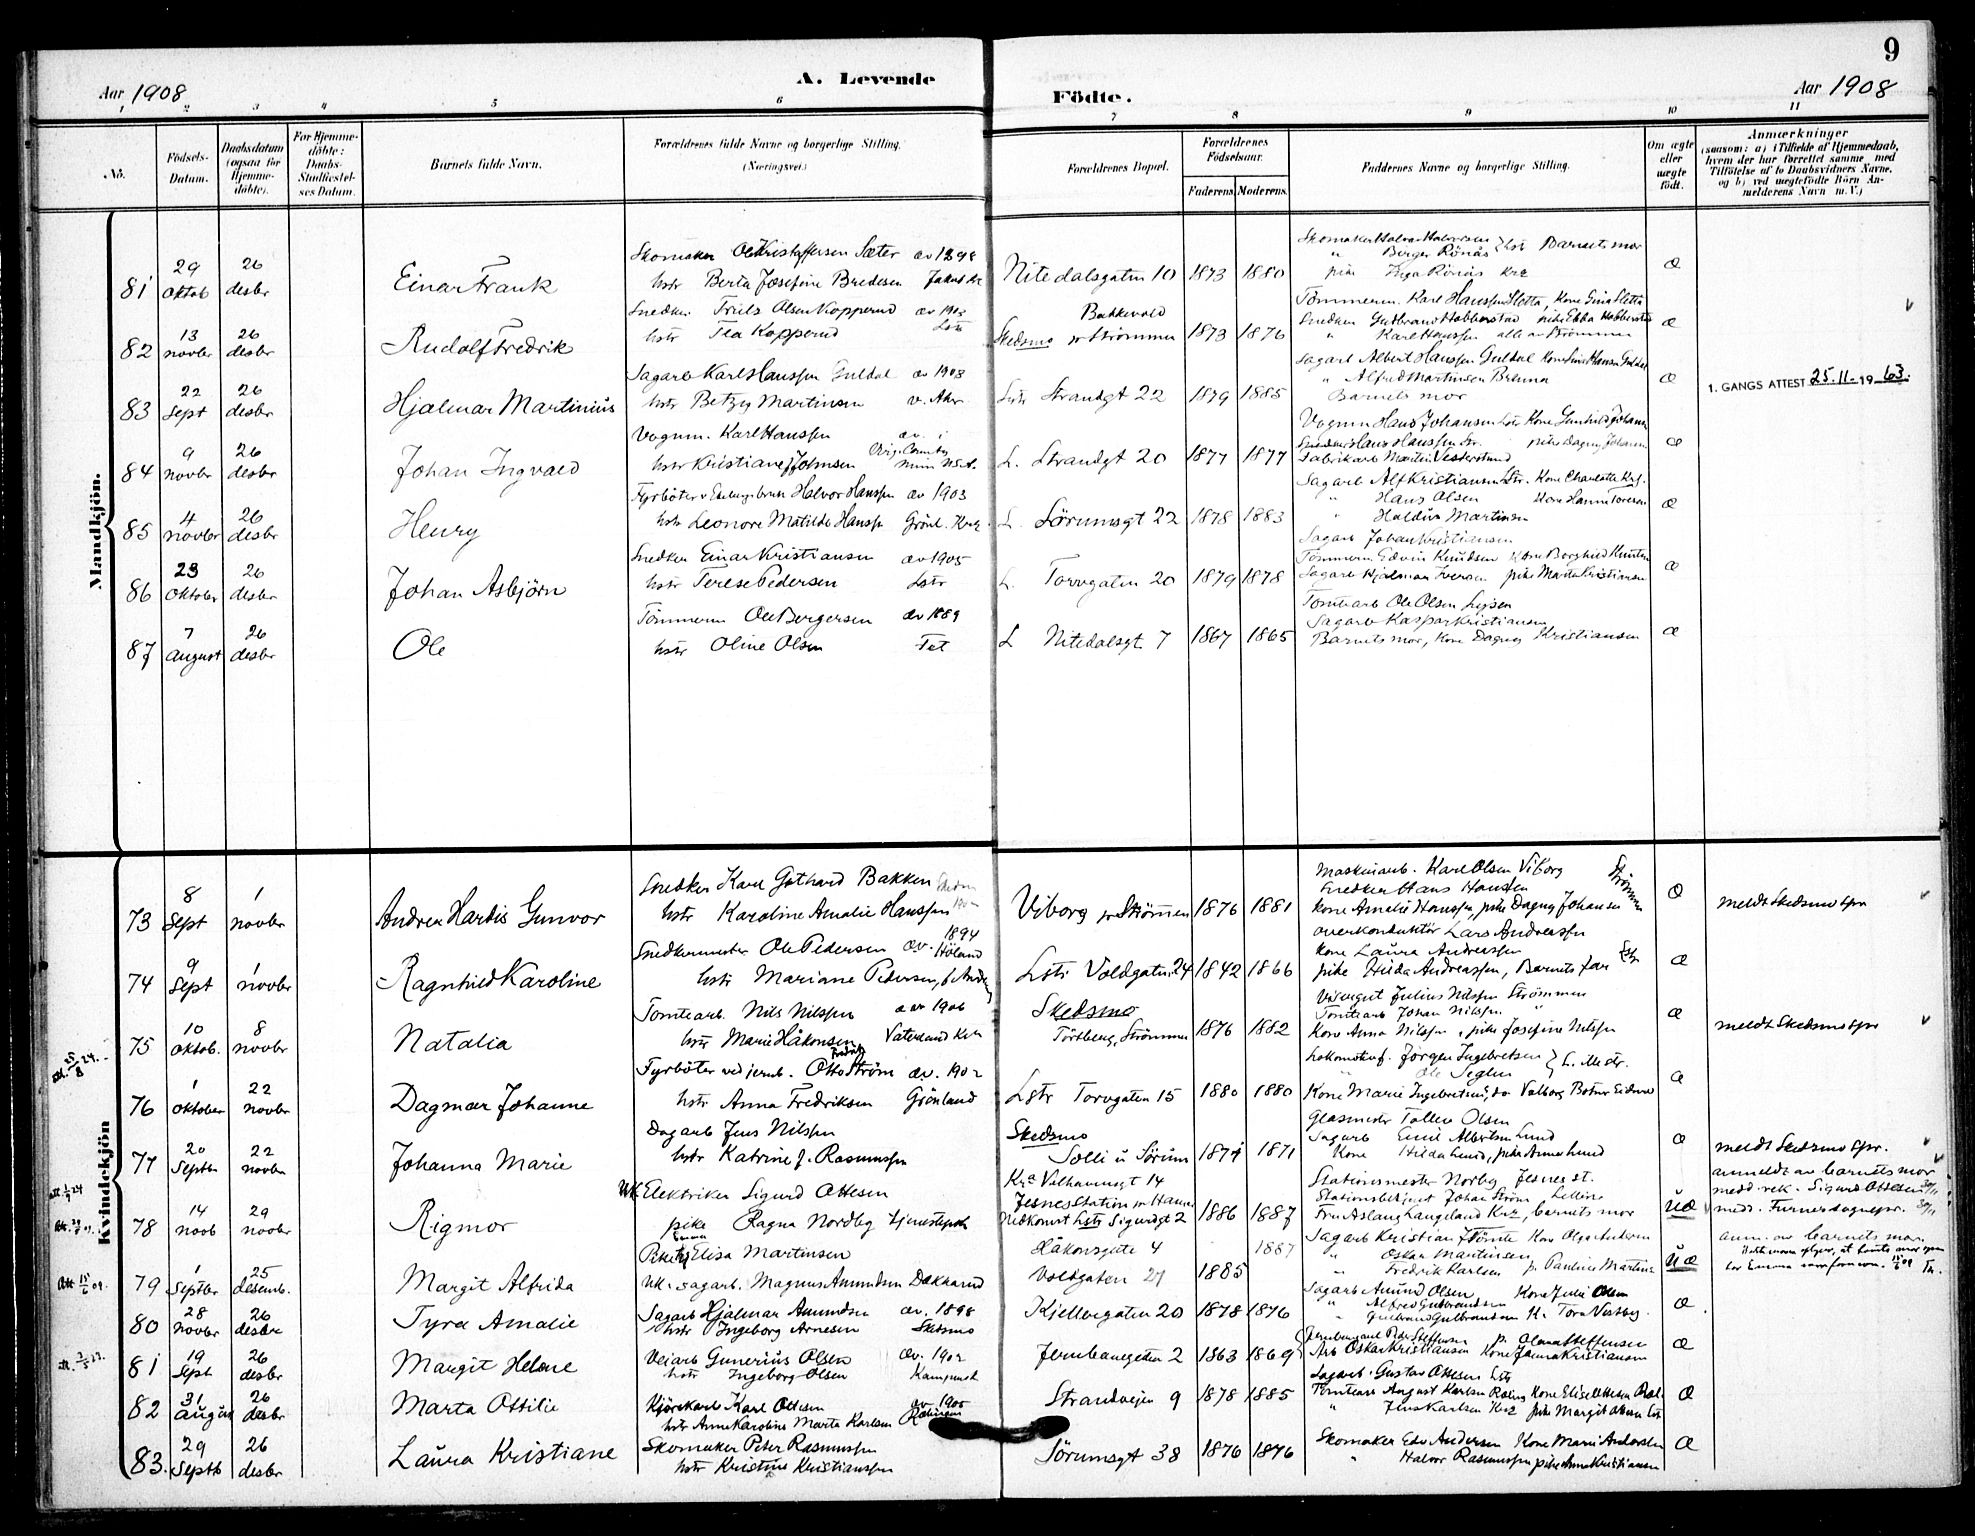 9
Aar 1908
A. Levende
Födte.
Aar 1908
1 2 3 4 5 6 7 8 9 10 11
No.
Födsels-Datum.
Daabsdatum (ogsaa for Hjemme-döbte).
For Hjemme-döbte: Daabs-Stadfæstel-ses Datum.
Barnets fulde Navn.
Forældrenes fulde Navne og borgerlige Stilling. (Næringsvei.)
Forældrenes Bopæl.
Forældrenes Födselsaar.
Faderens. Moderens.
Faddernes Navne og borgerlige Stilling.
Om ægte eller uægte födt.
Anmærkninger
(saasom: a) i Tilfælde af Hjemmedaab, hvem der har forrettet samme, med Tilföielse af to Daabsvidners Navne, og b) ved uægtefödte Börn An-melderens Navn m. V.)
Mandkjön.
81 29 oktob 26 desbr Einar Frank
Skomaker Ole Kristoffersen Sæter av 1898
hstr Berta Josefine Bredesen Jakob Kr
Nitedalsgaten 10 1873 1880
Skomaker Halvor Halvorsen Lstr Barnets mor
" Birger Rönås
pike Inga Rönås Kra
æ
82 13 novbr 26 desbr Rudolf Fredrik
Snedker Truls Olsen Kopperud av 1903
hstr Tea Kopperud Lstr
Bakkevold
Skedsmo pr Strömmen 1873 1876
Tömmerm. Karl Hanssen Sletta, Kone Gina Sletta
Snedker Gulbrand Hobberstad pike Ebba Hobberstad
" Karl Hanssen alle av Strömmen
æ
83 22 Sept 26 desbr Hjalmar Martinius
Sagarb Karl Hanssen Guldal av 1903
hstr Betzy Martinsen v. Aker
Lstr Strandgt 22 1879 1885
Sagarb Albert Hanssen Guldal Kone Lina Hansen Guldal
" Alfred Martinsen Brenna
Barnets mor
æ
1. GANGS ATTEST 25.11.1963.
84 9 novbr 26 desbr Johan Ingvald
Vognm. Karl Hanssen av. i
hstr Kristiane Johnsen Minn U.S.A.
L. Strandgt 20 1877 1877
Vognm Hans Johansen Lstr Kone Gunhild Johansen
Snedker Hans Hanssen Str. pike Dagny Johansen
Fabrikarb Martin Vesterstrand
æ
85 4 novbr 26 desbr Henry
Fyrböter v Halvor Hanssen av 1903
hstr Leonore Matilde Hanssen Grönl. Kra
L. Sörumsgt 22 1878 1883
Sagarb Alf Kristiansen Str. Kone Charlotte Kr.
" Hans Olsen Kone Hanna Toresen
" Haldur Martinsen
æ
86 23 oktober 26 desbr Johan Asbjörn
Snedker Einar Kristiansen av 1905
hstr Terese Pedersen Lstr
L. Torvgaten 20 1879 1878
Sagarb Johan Kristiansen
Tömmerm Edvin Knudsen Kone Borghild Knutsen
Sagarb Hjalmar Iversen pike Marta Kristiansen
æ
87 7 august 26 desbr Ole
Tömmerm Ole Bergersen av 1889
hstr Oline Olsen Fet
L Nitedalsgt 7 1867 1865
Tomtearb Ole Olsen
Sagarb Kaspar Kristiansen
Barnets mor, Kone Dagny Kristiansen
æ
Kvindekjön
73 8 Sept 1 novbr Andrea Hardis Gunvor
Snedker Karl Gothard Bakken
hstr Karoline Amalie Hanssen
Viborg pr Strömmen 1876 1881
Maskinarb. Karl Olsen Viborg
Snedker Hans Hansen
Kone Amalie Hanssen, pike Dagny Johansen Strömmen
æ
meldt Skedsmo spr
74 9 Sept 1 novbr Ragnhild Karoline
Snedkermester Ole Pedersen av. 1894 Höland
hstr Mariane Pedersen, f. Anders
Lstr Voldgaten 24 1842 1866
overkonduktör Lars Andreassen
Kone Laura Andreassen
pike Hilda Andreassen, Barnets far Lstr
æ
75 10 oktob. 8 novbr Natalia
Tomtearb. Nils Nilssen av 1906
hstr Marie Håkonsen Vaterland Kra
Skedsmo
Törtberg, Strömmen 1876 1882
Visergut Julius Nilssen Strömmen
Tomtearb Johan Nilssen "
Kone Anna Nilssen, pike Josefine Nilssen
æ
meldt Skedsmo spr
att. 25/8 24.
76 1 oktober 22 novbr Dagmar Johanne
Fyrböter ved jernb. Otto Fredrik Ström av. 1902
hstr Anna Fredriksen Grönland
Lstr Torvgaten 15 1880 1880
Lokomotivf. Jörgen Ingebretsen L. Mestr.
" Ole Seglen
Kone Marie Ingebretsen, do Valborg
æ
77 20 Septbr 22 novbr Johanna Marie
Dagarb Jens Nilssen
hstr Katrine J. Rasmussen
Skedsmo
Solli i Sörum 1874 1871
Glasmester Tollev Olsen
Sagarb Emil Albertsen Lund
Kone Hilda Lund, pike Anna Lund
æ
meldt Skedsmo spr.
att 24
78 14 novb 29 novbr Rigmor
Uk. Elektriker Sigurd Ottesen
pike Ragna Nordby tjenestepike
Kra Vilhelmsgt 14
Jesnes station pr Hamar
Nedkomst Lstr Sigurdsgt 2 1886 1887
Stationsmester Norby Jesnes st.
Stationsbetjent Johan Ström
Fru Aslaug Langeland Kra, barnets mor
uæ
anmeldt av barnets mor
medd rek. Sigurd Ottesen 30/11
medd. Furnes sognepr. 30/11
79 1 Septbr 25 desemb. Margit Alfrida
Pike Emma Elisa Martinsen
Uk. sagarb. Magnus Amundsen Dakkerud
Håkonsgate 4 1887
Voldgaten 27 1885
Sagarb Kristian Kone Olga Andersen
" Oskar Martinsen
" Fredrik Karlsen p. Pauline Martins
uæ
anm. av barnets mor.
att 15/6 09.
80 28 novbr 26 desbr Tyra Amalie
Sagarb Hjalmar Amundsen av. 1898
hstr Ingeborg Arnesen Skedsmo
Kjellergaten 20 1878 1876
Sagarb Amund Olsen Kone Julie Olsen
" Alfred Gulbrandsen
" Gulbrand Gulbrandsen K. Tora Vestby
æ
81 19 Sept 26 desbr Margit Helene
Veiarb Gunerius Olsen av. 1902
hstr Ingeborg Olsen Kampen
Jernbanegaten 2 1863 1869
Peder Steffensen p. Olava Steffensen
Arb Oskar Kristiansen Kone Janna Kristiansen
æ
82 31 august 26 desbr Marta Ottilie
Kjörekarl Karl Ottesen av. 1905
hstr Anne Karoline Marta Karlsen Rælingen
Strandveien 9 1878 1885
Sagarb. Gustav Ottesen Lstr
Tomtearb August Karlsen Ræling Kone Elise Ottesen Ræl.
" Jens Karlsen Kra pike Margit Olsen Lstr
æ
83. 29 Septb 26 desbr Laura Kristiane
Skomaker Peter Rasmussen
hstr Kristine Kristianssen
Sörumsgt 38 1876 1876
Skomaker Edv Andersen Kone Marie Andersen
" Halvor Rasmussen pike Anna Kristiansen
æ